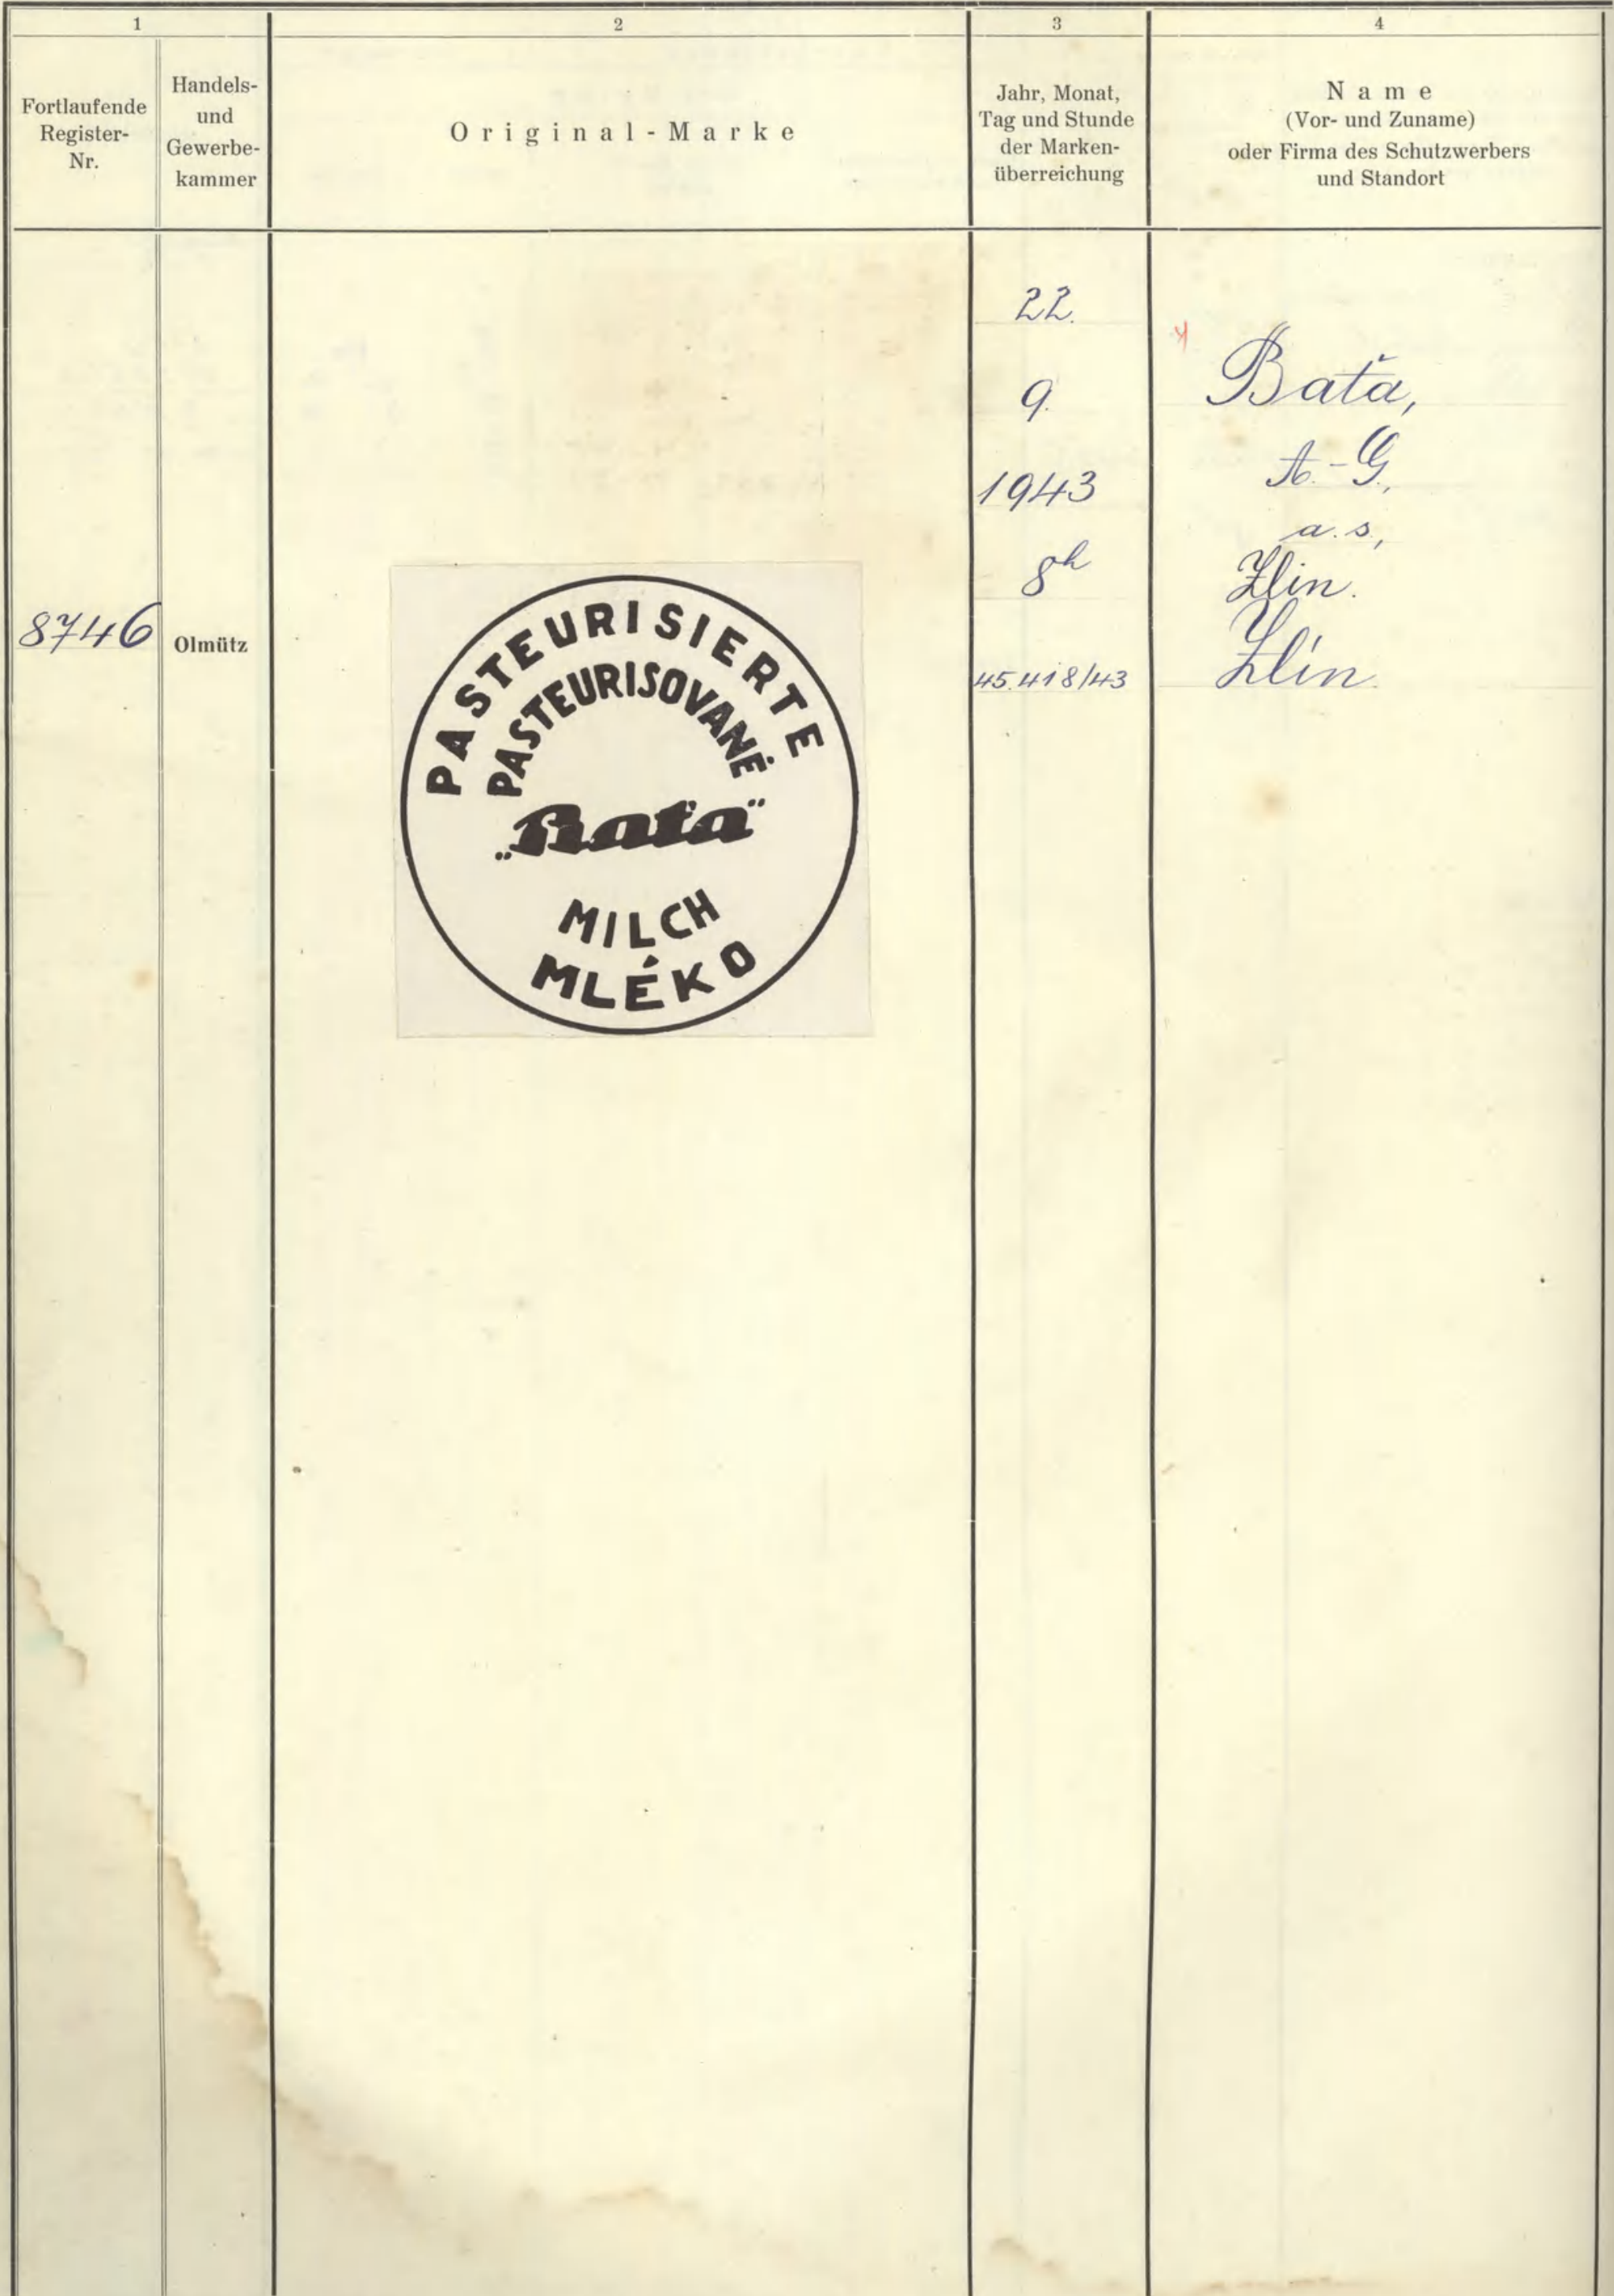 1
2
3
4
Fortlaufende
Register-
Nr.
Handels-
und
Gewerbe-
kammer
Original-Marke
Jahr, Monat,
Tag und Stunde
der Marken-
überreichung
Name
(Vor- und Zuname)
oder Firma des Schutzwerbers
und Standort
8746
Olmütz
PASTEURISIERTE
PASTEURISOVANÉ
„Baťa"
MILCH
MLÉKO
22.
9.
1943
8h
45.418/43
Baťa,
A.-G.,
a. s.,
Zlin.
Zlín.